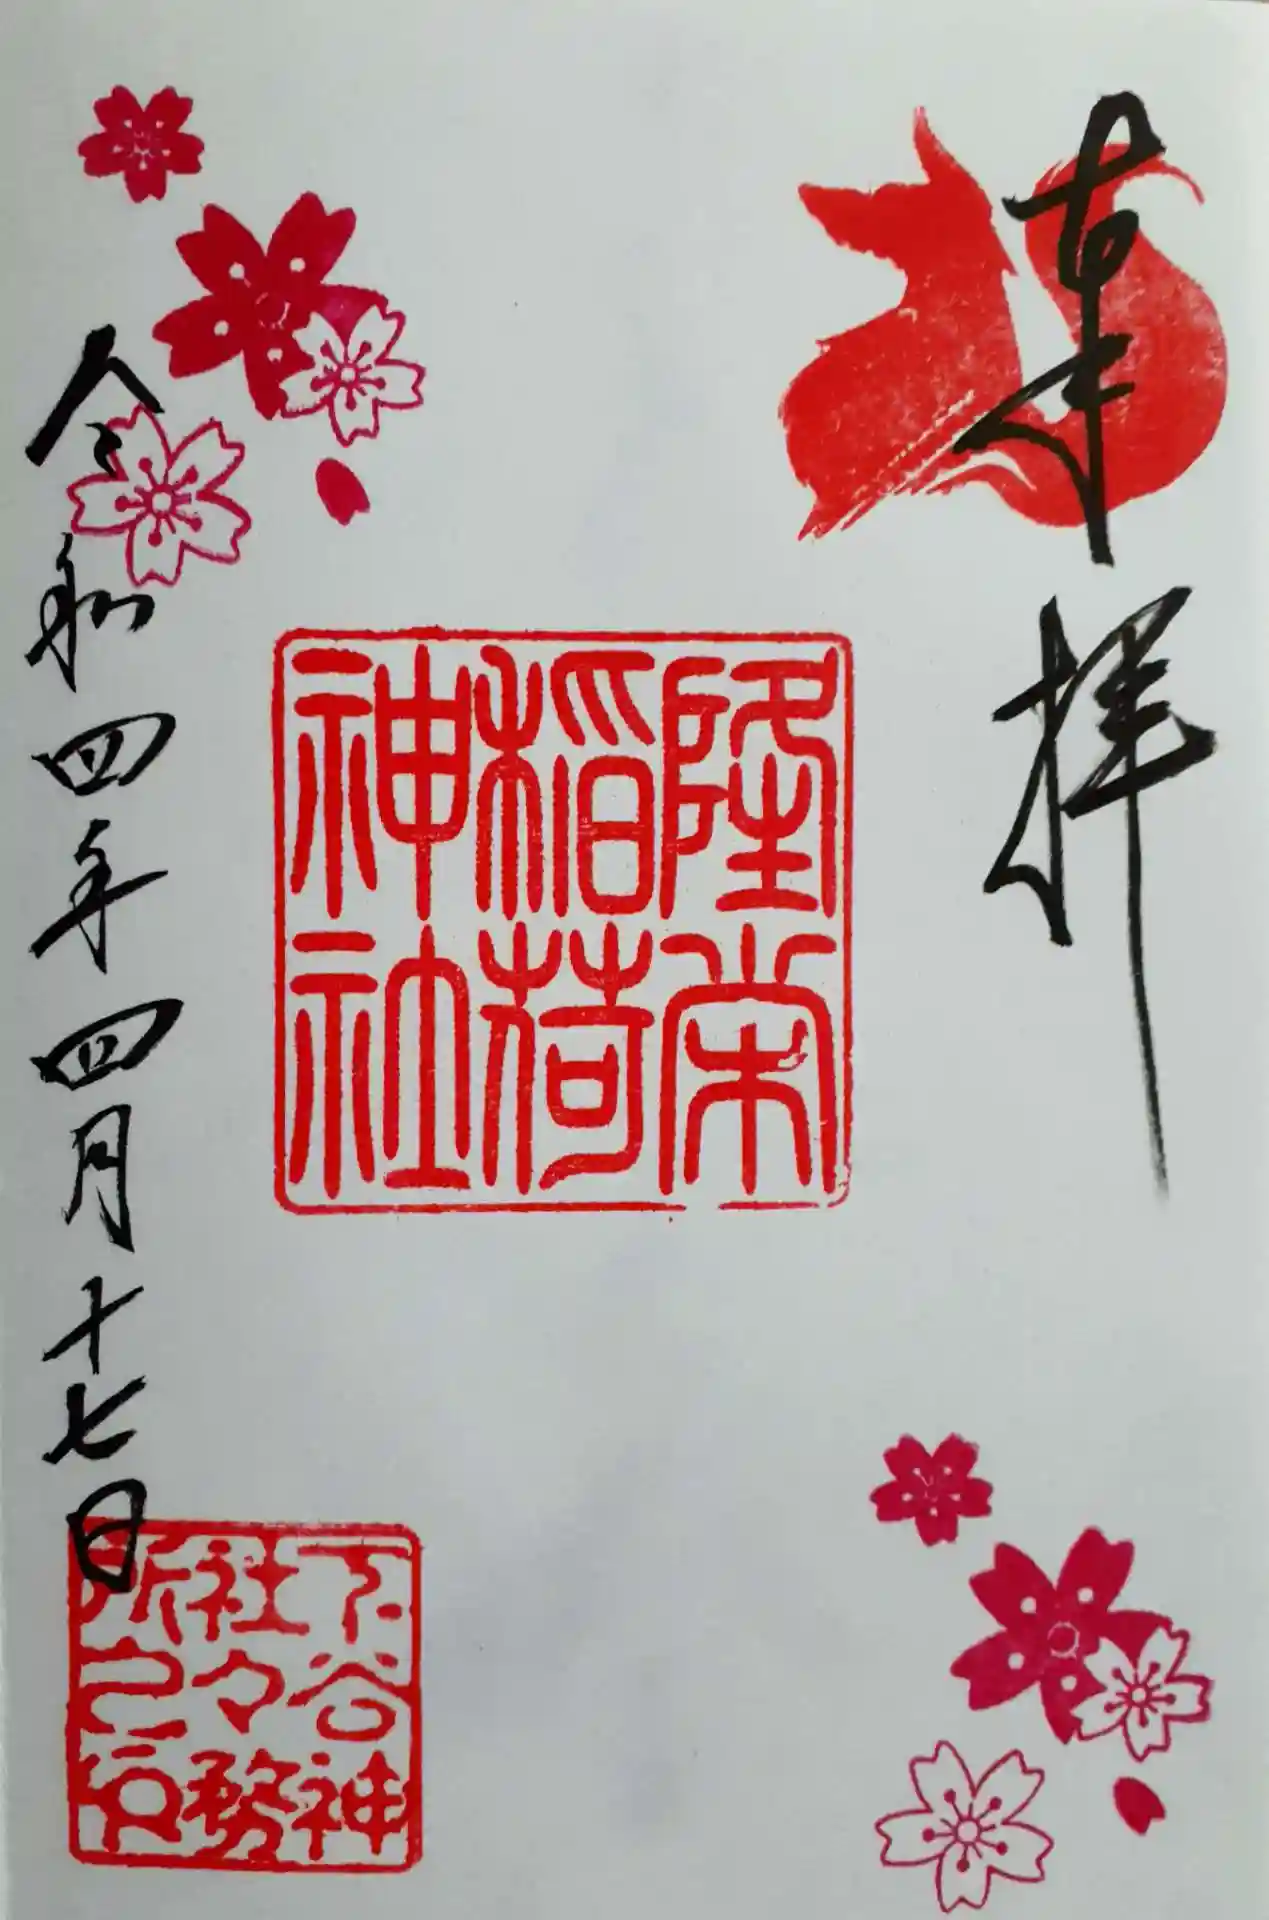 奉拝
隆栄
稲荷
神社
令和四年四月十七日
下谷神
社々務
所之印